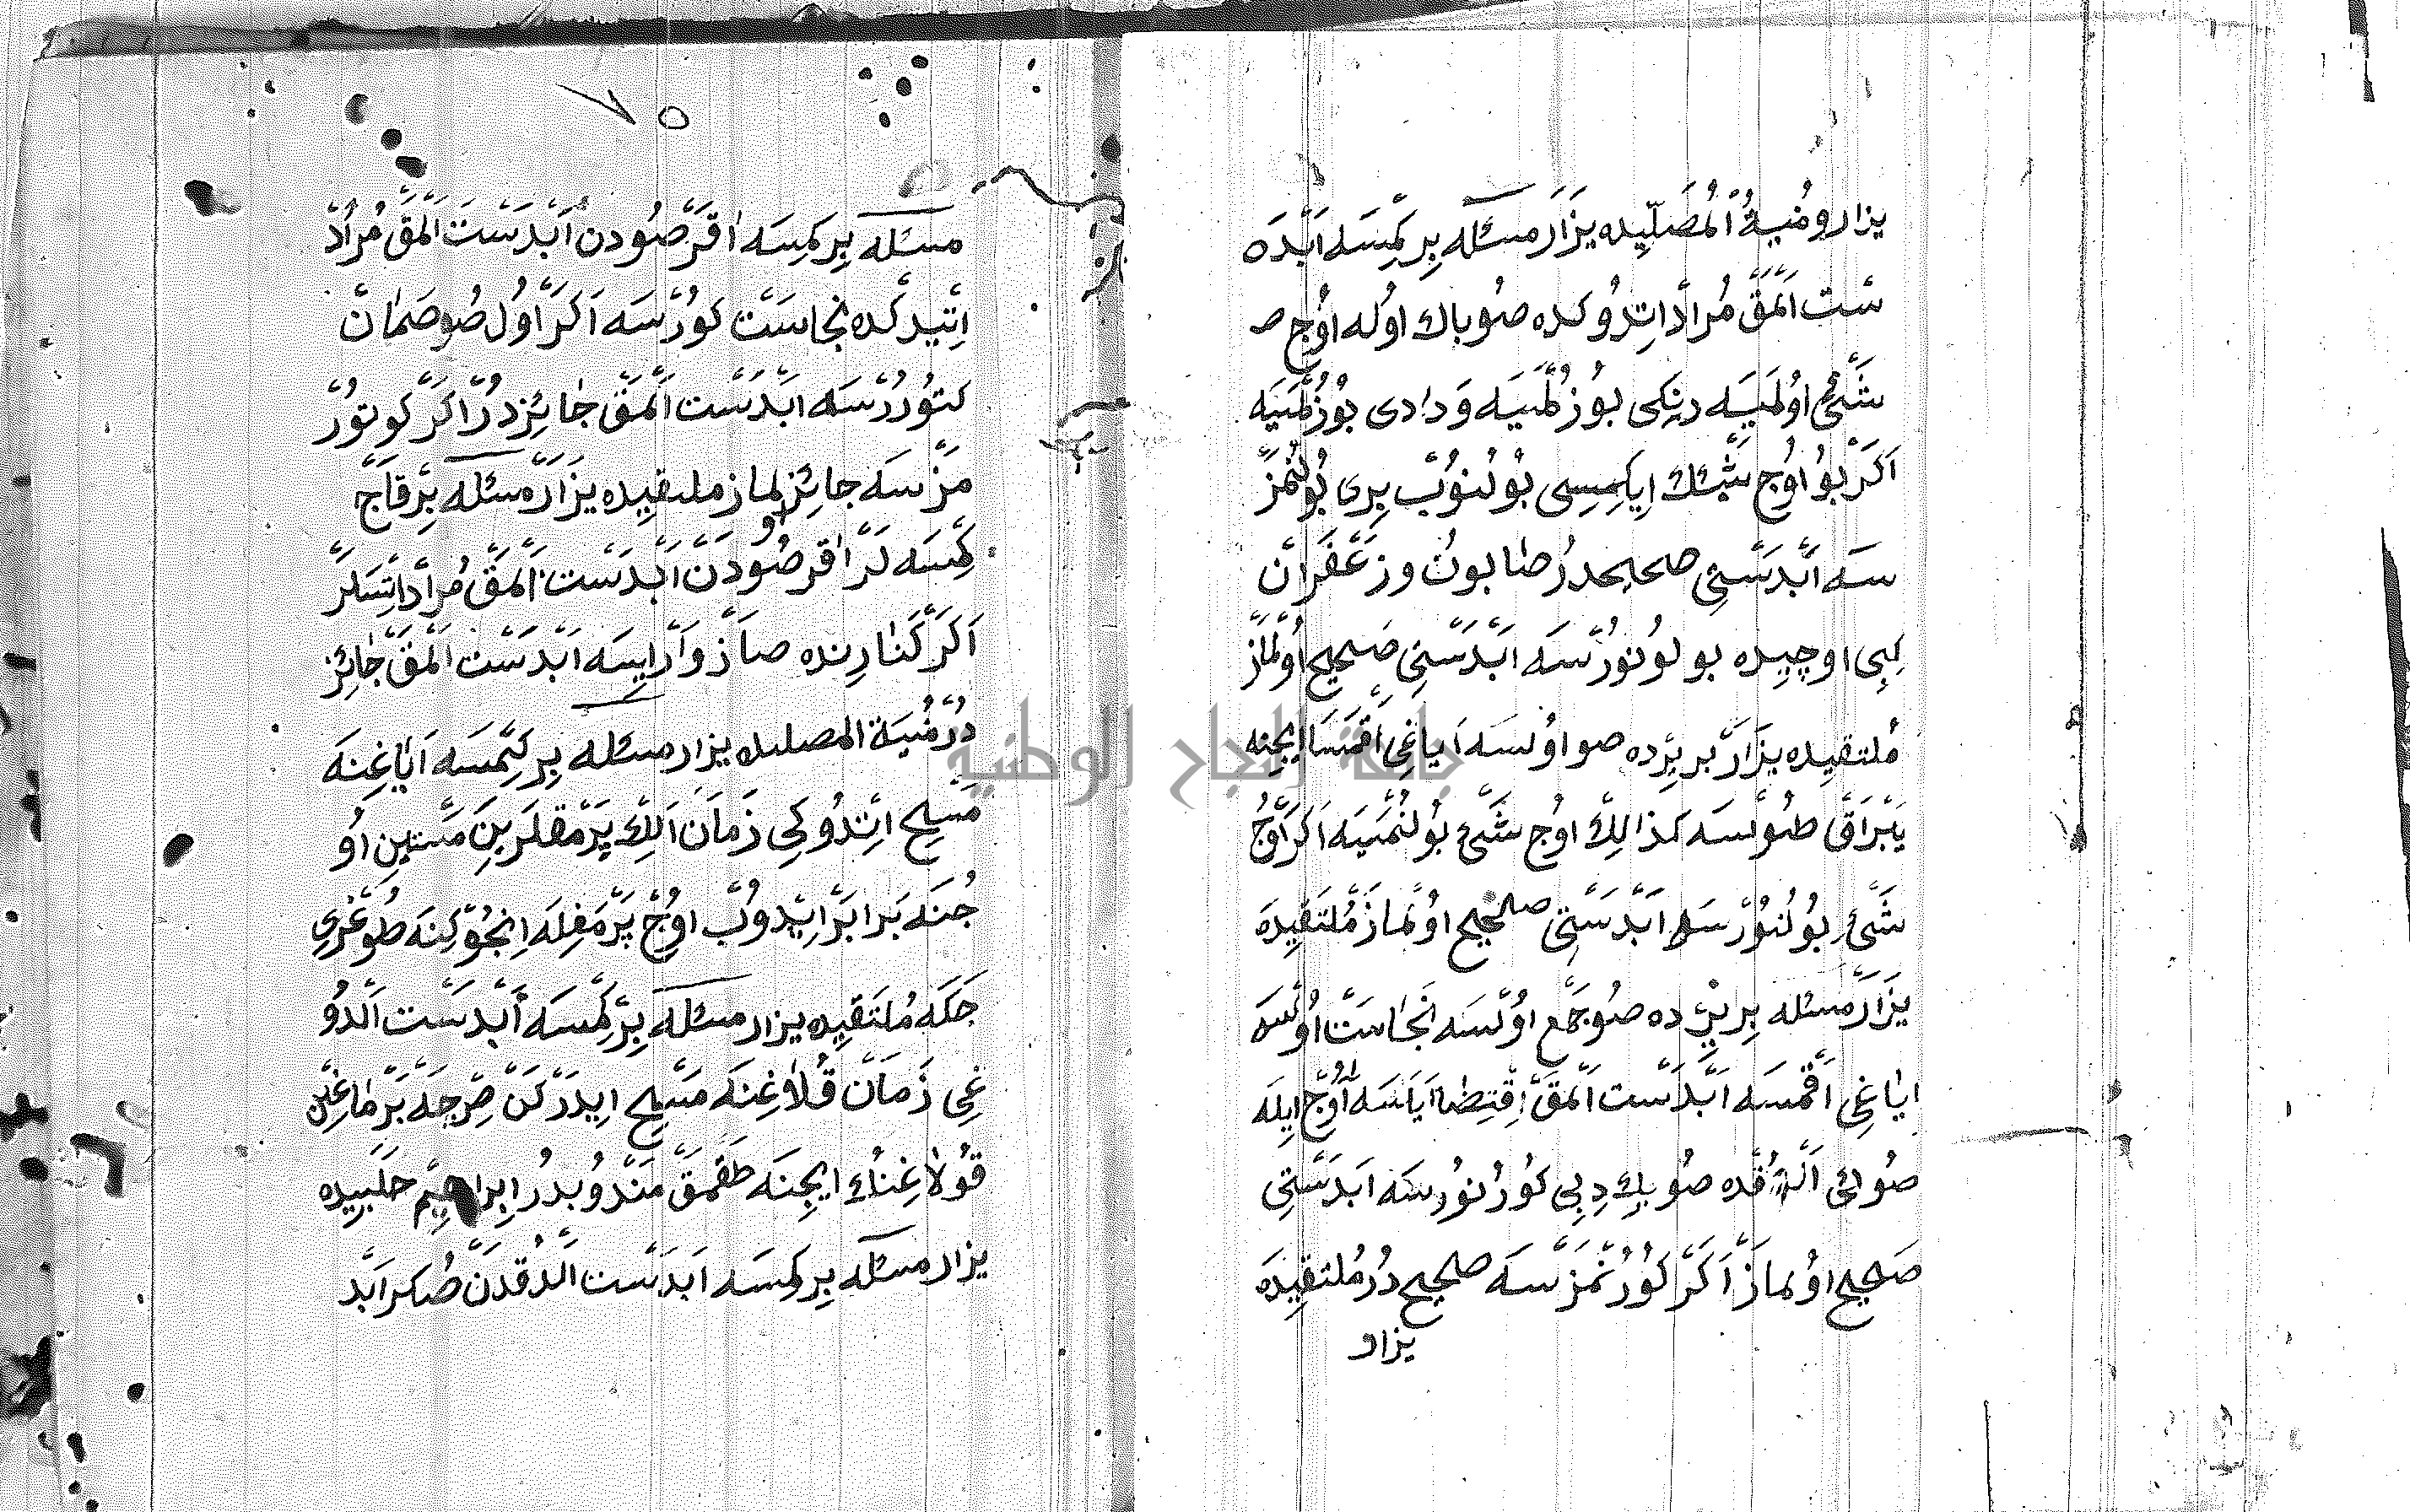 يزار ومُنيةُ الْمُصَلّيِده يَزَارْ مسئله بِر كِمْسَه اَبْدَه
سْت اَلْمَقْ مُرادْ اتِدُوكده صُو باك اوُله اوُچ
شَىْٔ اوُلمَيَه رنِكى بوُزُلْمَيَه وَدادى بوُزُلْمَيَه
اَكَرْ بوُ اوُچ شَيْئك اِيكِسِى بوُلنوُبْ بِرى بوُلنْمَزْ
سَه اَبْدَسْتِى صحيحدرُ صابون وزَعْفَرانْ
كِبِى اوچيِده بولوُنوُرْسَه ابَدَسْتِى صَحيِح اوُلْمَازْ
مُلتقيِده يَزَارْ بر يَرده صو اوُلسَه اَياغِى اَقْمَسَا ايچِنه
يَبْرَاقْ طوُلسَه كذالِكْ اوُچ شَىْٔ بوُلنُمَيَه اَكَرْ اوُچ
شَىْٔ بوُلنوُرْسَه اَبْدَسْتِى صحيح اوُلمازْ مُلْتَقَيِدَه
يَزَارْ مسئله بِر يَرْده صوُ جَمْع اوُلسَه نَجَاسَتْ اوُلسَه
اياغِى اَقْمَسَه اَبْدَسْت اَلْمَقْ اِقْتِضا اَيَاسَه اوُچ ايِلَه
صُوئى اَلدُقْده صُويِك دِبِى كوُرُنوُرسَه اَبدَسْتِى
صَحِيح اوُلمازْ اَكَرْ كوُرُنْمَزْسَه صحيح دُرْ مُلتقيِدَه
يزار
٧٥
مسئله بِر كِمسَه اَقَرْ صُودن اَبْدَسْتَ اَلْمَقْ مُرادْ
اِتْيدكده نجاسَتْ كوُرْسَه اَكَرْ اَوُل صُو صَمَانْ
كتوُرُرْسَه اَبْدَسْت اَلْمَقْ جَائِزدُرْ اَكَرْ كوتوُرْ
مَزْسَه جائِز اولماز ملتقيِده يَزَارْ مسئله بِرْ قاَچْ
كِمْسَه لَرْ اَقَر صُودَنْ اَبْدَسْت اَلمَقْ مُرادْ اتِسَلَرْ
اَكَرْ كَنارِنده صاَزْ وَاَرْايِسَه اَبْدَسْت اَلْمَقْ جَائِز
دُرْ مُنْيَة المصليده يزار مسئله بِر كِمْسَه اَيَاغِنَه
مَسِح اتِدُوكى زَمَانْ اَلِكْ پَرْمقلَرِينِ مَسْتين اوُ
جُنَه بَرابَرْ ايِدوُبْ اوُچْ پَرْمَغِلَه اِنْجوُكِنَه طوُغْرىِ
چَكَه مُلتَقَيِده يزار مسئله بِرْ كِمْسَه اَبْدَسْت اَلْدوُ
غِى زَمَانْ قُلاغِنَه مَسِح ايِدَرْكَنْ صِرجَه بَرْماغِنِ
قوُلاغِنك ايچِنَه طَقْمَقْ مَنْدوُبدُرْ اِبراهِيم حَلَبيِده
يزار مسئله بِر كِمسَه اَبدَسْت اَلْدُقدَنْ صُكر اَبْد